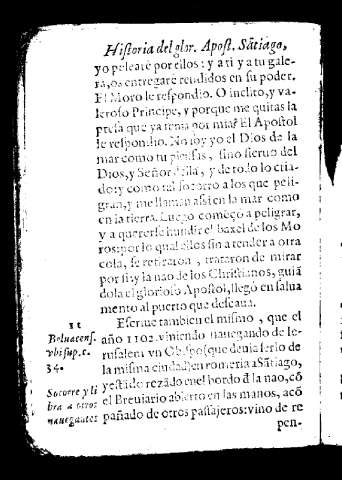 Historia del glor. Apost. Sãtiago,
yo peleare por ellos: y a ti y a tu gale-
ra, os entregarè rendidos en su poder.
El Moro le respondio. O inclito, y va-
leroso Principe, y porque me quitas la
presa que ya tenia por mia? El Apostol
le respondio. No soy yo el Dios de la
mar como tu piensas, sino sieruo del
Dios, y Señor della, y de todo lo cria-
do: y como tal socorro a los que peli-
gran, y me llaman assi en la mar como
en la tierra. Luego começò a peligrar,
y a quererse hundir el baxel de los Mo
ros: por lo qual ellos sin atender a otra
cosa, se retiraron, y trataron de mirar
por si: y la nao de los Christianos, guiã
dola el glorioso Apostol, llegò en salua
mento al puerto que desseaua.
11
Beluacens.
vbi sup. c.
34.
Escriue tambien el mismo, que el
año 1102. viniendo nauegando de Ie-
rusalem vn Obispo (que deuia serlo de
la misma ciudad) en romeria a Sãtiago,
y estãdo rezãdo en el bordo d̃ la nao, cõ
el Breuiario abierto en las manos, acõ
pañado de otros passajeros: vino de re
Socorre y li
bra a otros
nauegantes
pen-